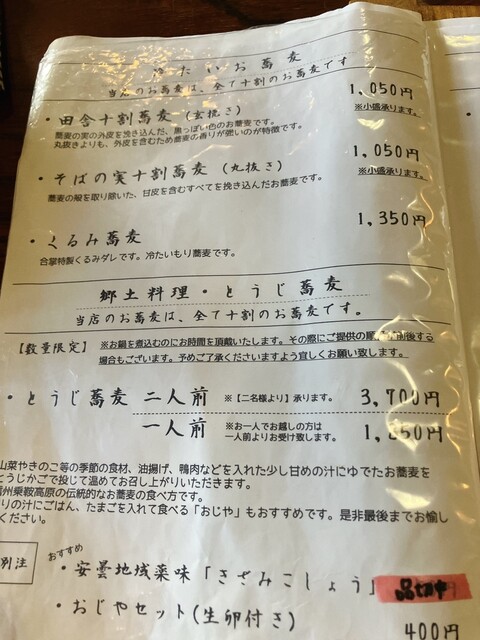 冷たいお蕎麦
当店のお蕎麦は、全て十割のお蕎麦です
・田舎十割蕎麦（玄挽き） 1,050円
蕎麦の実の外皮を挽き込んだ、黒っぽい色のお蕎麦です。 ※小盛承ります。
丸抜きよりも、外皮を含むため蕎麦の香りが強いのが特徴です。
・そばの実十割蕎麦（丸抜き） 1,050円
蕎麦の殻を取り除いた、甘皮を含むすべてを挽き込んだお蕎麦です。 ※小盛承ります。
・くるみ蕎麦 1,350円
合掌特製くるみダレです。冷たいもり蕎麦です。
郷土料理・とうじ蕎麦
当店のお蕎麦は、全て十割のお蕎麦です。
【数量限定】 ※お鍋を煮込むのにお時間を頂戴いたします。その際にご提供の順が前後する
場合もございます。予めご了承くださいますよう宜しくお願い致します。
・とうじ蕎麦 二人前 ※【二名様より】承ります。 3,700円
一人前 ※お一人でお越しの方は
一人前よりお受け致します。 1,850円
山菜やきのこ等の季節の食材、油揚げ、鴨肉などを入れた少し甘めの汁にゆでたお蕎麦を
とうじかごで投じて温めてお召し上がりいただきます。
信州乗鞍高原の伝統的なお蕎麦の食べ方です。
りの汁にごはん、たまごを入れて食べる「おじや」もおすすめです。是非最後までお愉し
ください。
別注
おすすめ
・安曇地域薬味「きざみこしょう」 品切中
・おじやセット(生卵付き) 400円